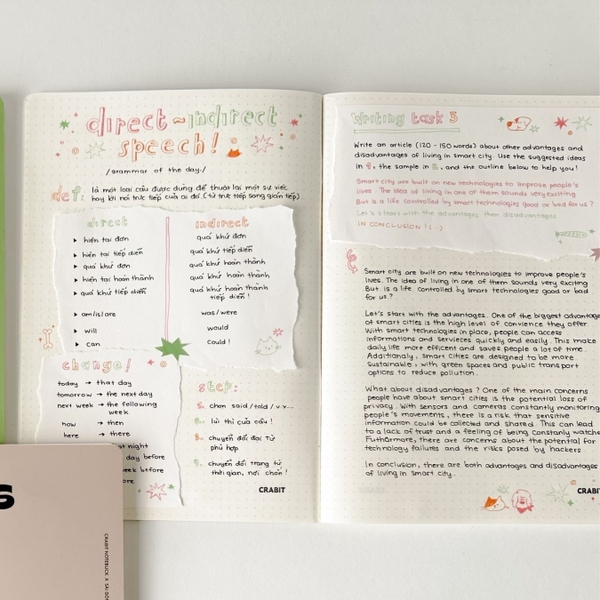 direct ~ indirect
speech!
/grammar of the day./
def: là một loại câu được dùng để thuật lại một sự việc
hay lời nói trực tiếp của ai đó. (từ trực tiếp sang gián tiếp)
direct
▸ hiện tại đơn
▸ hiện tại tiếp diễn
▸ quá khứ đơn
▸ hiện tại hoàn thành
▸ quá khứ tiếp diễn
▸ am/is/are
▸ will
▸ can
indirect
quá khứ đơn
quá khứ tiếp diễn
quá khứ hoàn thành
quá khứ hoàn thành
quá khứ hoàn thành
tiếp diễn!
was/were
would
Could!
change/
today → that day
tomorrow → the next day
next week → the following
week
how → then
here → there
night
day before
week before
before
step:
1. chọn said/told/v.v...
2. lùi thì của câu!
3. chuyển đổi đại từ
phù hợp
4. chuyển đổi trạng từ
thời gian, nơi chốn!
CRABIT
s
CRABIT NOTEBUCK X
Writing task 3
Write an article (120 - 150 words) about other advantages and
disadvantages of living in smart city. Use the suggested ideas
in , the sample in , and the outline below to help you!
Smart city are built on new technologies to improve people's
lives. The idea of living in one of them sounds very exciting
But is a life controlled by smart technologies good or bad for us?
Let's starts with the advantages, then disadvantages
IN CONCLUSION!
Smart city are built on new technologies to improve people's
lives. The idea of living in one of them sounds very exciting
But is a life controlled by smart technologies good or bad
for us?
Let's stars with the advantages. One of the biggest advantages
of smart cities is the high level of convience they offer
With smart technologies in place, people can access
informations and servieces quickly and easily. This make
daily life more efficent and saves people a lot of time.
Additionaly, smart cities are designed to be more
sustainable, with green spaces and public transport
options to reduce pollution.
What about disadvantages? One of the main concerns
people have about smart cities is the potential loss of
privacy. With sensors and cameras constantly monitoring
people's movements, there is a risk that sensitive
information could be collected and shared. This can lead
to a lack of trust and a feeling of being constantly watche
Futhermore, there are concerns about the potential for
technology failures and the risks posed by hackers
In conclusion, there are both advantages and disadvantages
of living in smart city.
CRABIT